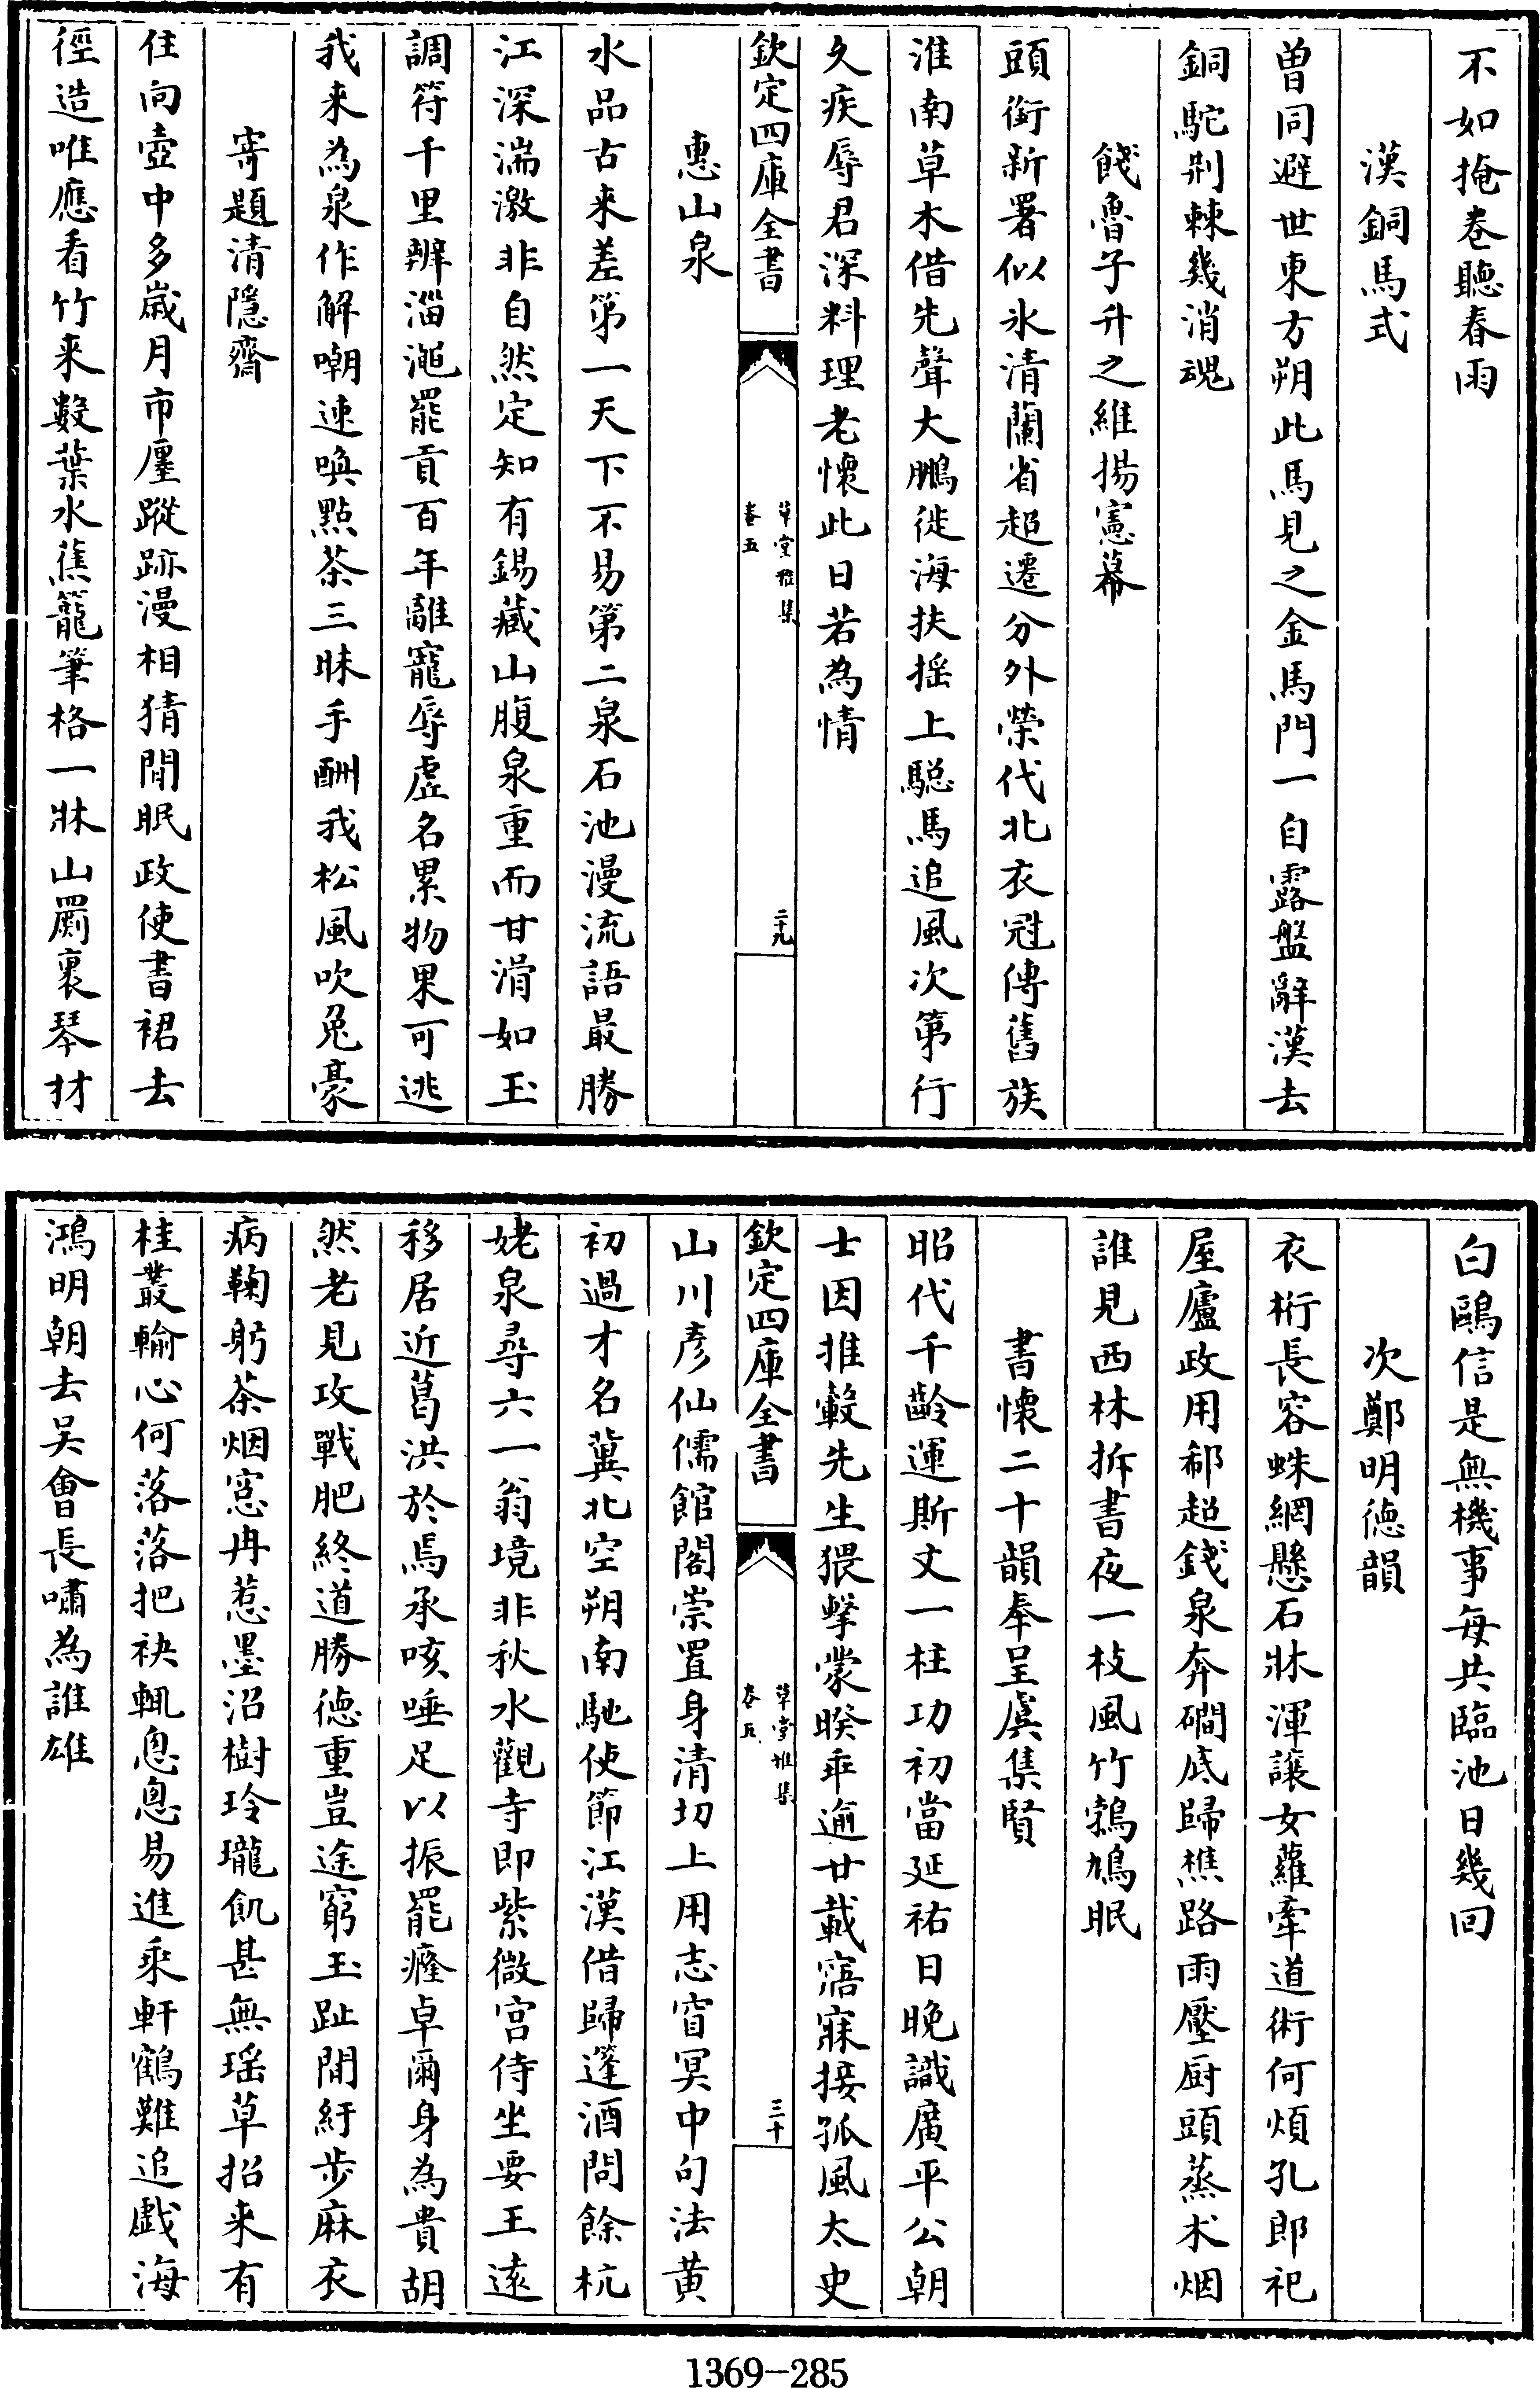 不如掩卷聽春雨
漢銅馬式
曽同避世東方朔此馬見之金馬門一自露盤辭漢去
銅駝荆棘幾消魂
餞魯子升之維揚憲幕
頭銜新署似氷清蘭省超遷分外榮代北衣冠傳舊族
淮南草木借先聲大鵬徙海扶揺上驄馬追風次第行
久疾辱君深料理老懷此日若為情
欽定四庫全書
草堂雅集
卷五
二十九
惠山泉
水品古来差第一天下不易第二泉石池漫流語最勝
江深湍激非自然定知有錫藏山腹泉重而甘滑如玉
調符千里辨淄澠罷貢百年離寵辱虚名累物果可逃
我来為泉作解嘲速喚點茶三昧手酬我松風吹兔豪
寄題清隱齋
住向壺中多嵗月市廛蹤跡漫相猜閒眠政使書裙去
徑造唯應看竹来數葉水蕉籠筆格一牀山罽裹琴材
白鷗信是無機事毎共臨池日幾回
次鄭明徳韻
衣桁長容蛛網懸石牀渾讓女蘿牽道術何煩孔郎祀
屋廬政用郗超錢泉奔磵底歸樵路雨壓厨頭蒸朮烟
誰見西林拆書夜一枝風竹鵓鳩眠
書懷二十韻奉呈虞集賢
昭代千齡運斯文一柱功初當延祐日晚識廣平公朝
士因推轂先生猥擊蒙睽乖逾廿載寤寐接孤風太史
欽定四庫全書
草堂雅集
卷五
三十
山川彦仙儒館閣崇置身清切上用志窅冥中句法黄
初過才名冀北空朔南馳使節江漢借歸篷酒問餘杭
姥泉尋六一翁境非秋水觀寺即紫微宫侍坐要王逺
移居近葛洪於焉承咳唾足以振罷癃卓爾身為貴胡
然老見攻戰肥終道勝徳重豈途窮玉趾閒紆歩麻衣
病鞠躬茶烟窓冉惹墨沼樹玲瓏飢甚無瑶草招来有
桂叢輸心何落落把袂輒悤悤易進乗軒鶴難追戯海
鴻明朝去吴會長嘯為誰雄
1369-285